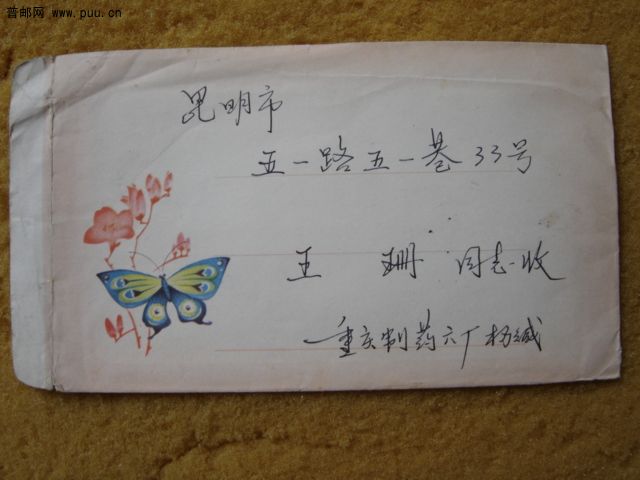 普邮网 www.puu.cn
昆明市
五一路五一巷33号
王 珊 同志收
重庆制药六厂杨缄